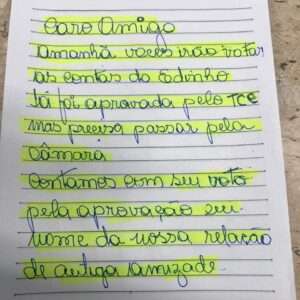 Caro Amigo
amanhã voces irão votar
as contas do Edinho
Já foi aprovada pelo TCE
mas precisa passar pela
Câmara
contamos com seu voto
pela aprovação em
nome da nossa relação
de antiga amizade.